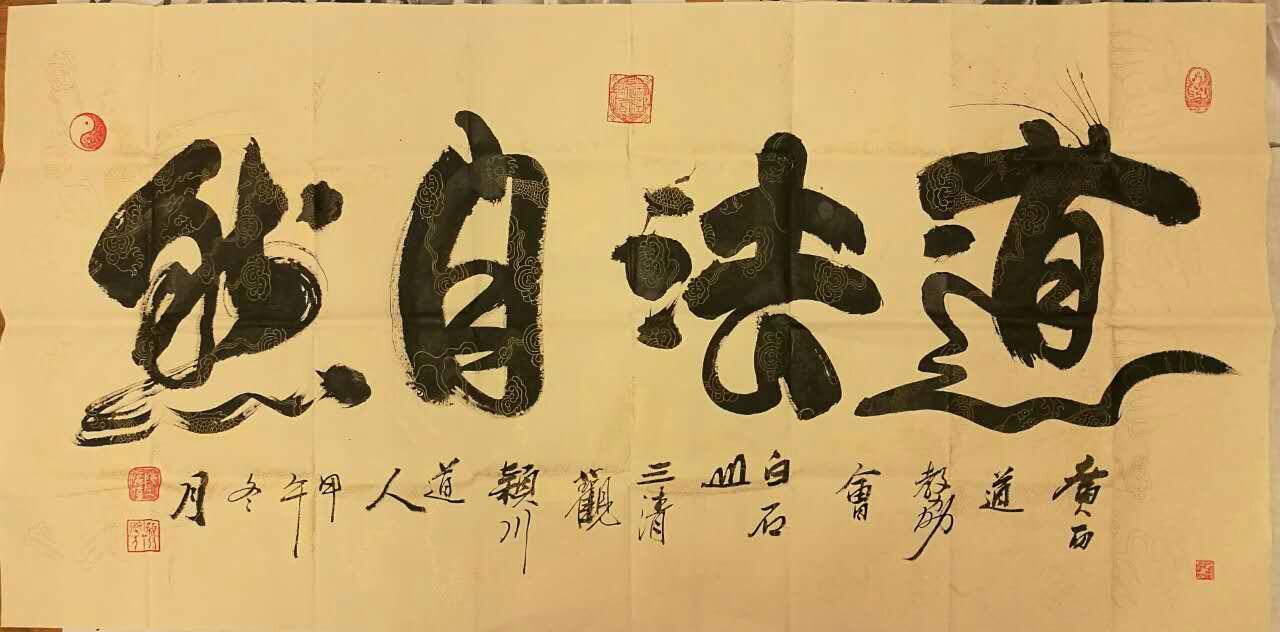 道法自然
廣西道教協會白石山三清觀穎川道人甲午冬月